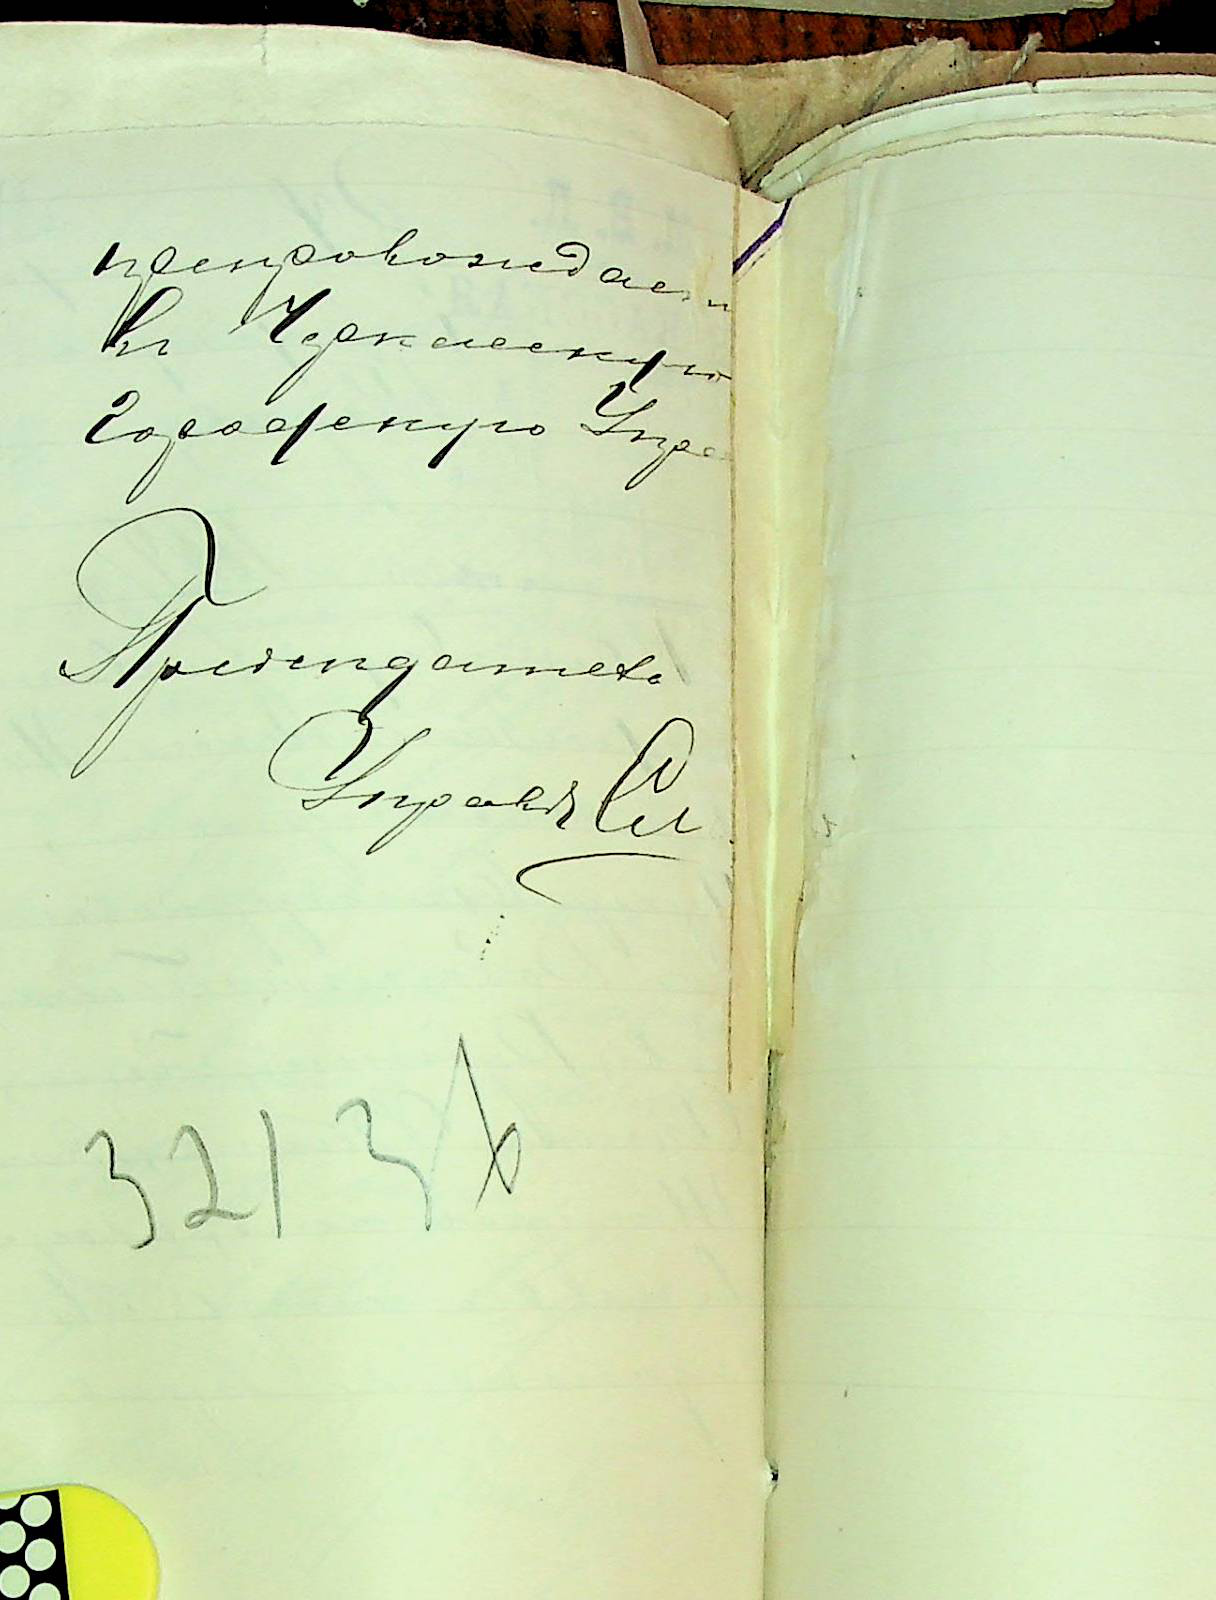 препровождает
въ Черкасскую
Городскую Упра
Председатель
Управы
3213